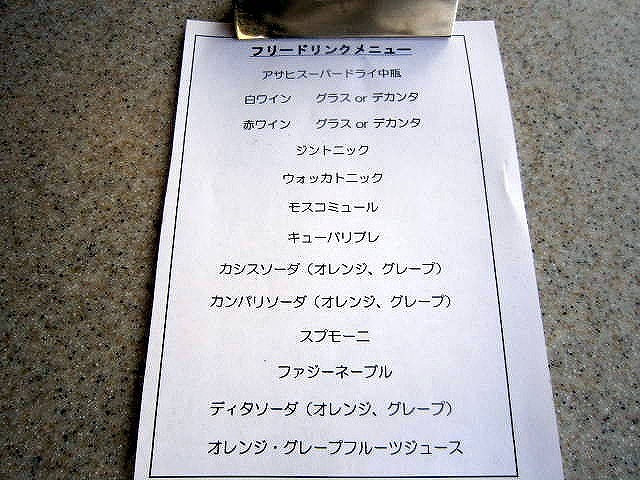 フリードリンクメニュー
アサヒスーパードライ中瓶
白ワイン　グラス or デカンタ
赤ワイン　グラス or デカンタ
ジントニック
ウォッカトニック
モスコミュール
キューバリブレ
カシスソーダ（オレンジ、グレープ）
カンパリソーダ（オレンジ、グレープ）
スプモーニ
ファジーネーブル
ディタソーダ（オレンジ、グレープ）
オレンジ・グレープフルーツジュース